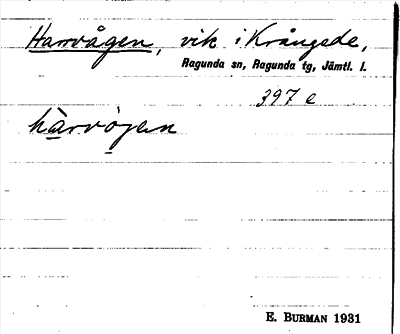 Harrvågen, vik i Krångede,
Ragunda sn, Ragunda tg, Jämtl. l.
397 e
hàrvo̱jen
E. Burman 1931